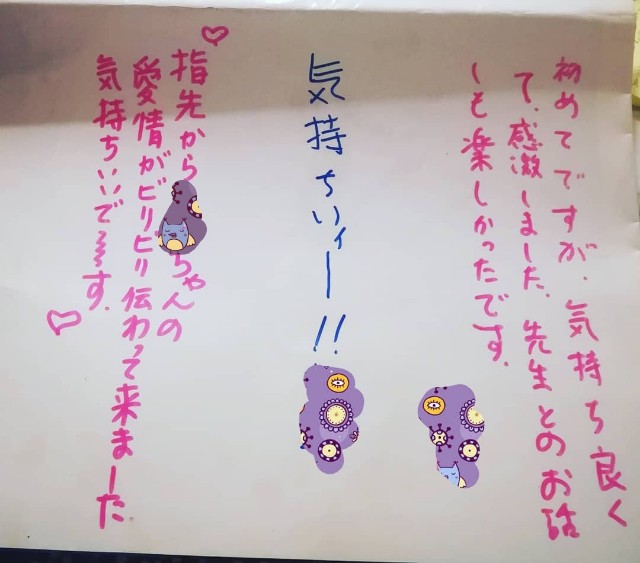 初めてですが、気持ち良く
て、感激しました。先生とのお話
しも楽しかったです。
気持ちいィー!!
指先から
ちゃんの
愛情がビリビリ伝わって来ました
気持ちいいで〜す。